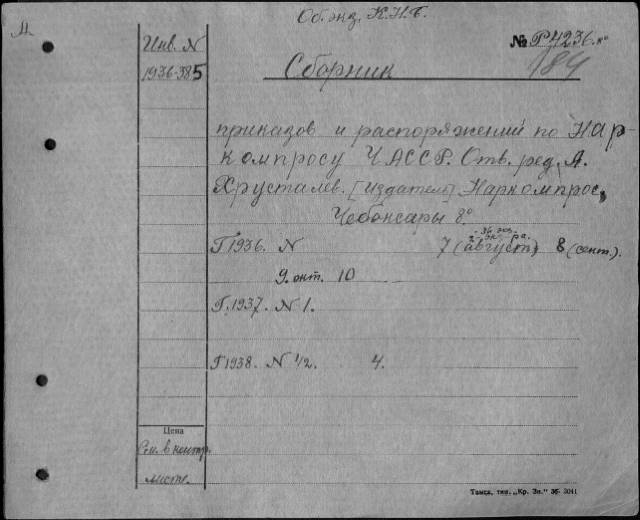 Об. экз. К.Н.Б.
Инв. N
№ Р4236. 8°
1936-385
Сборник
184
приказов и распоряжений по Нар
компросу ЧАССР. Отв. ред. А.
Хрусталев. [издатель] Наркомпрос,
Чебоксары 8°.
Г 1936. N 7 (август) 8 (сент.).
9. окт. 10
Г. 1937. N 1.
Г 1938. N 1/2. 4.
Цена
См. в контр.
листе.
Томск, тип. „Кр. Зн." 36-3041